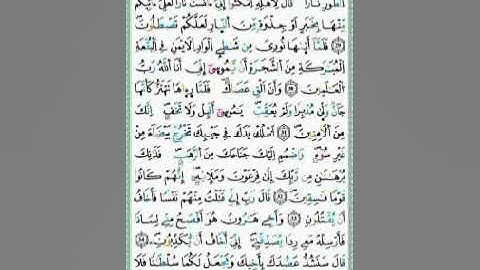 الطُّورِ نَارًا قَالَ لِأَهْلِهِ امْكُثُوا إِنِّي ءَانَسْتُ نَارًا لَعَلِّي ءَاتِيكُمْ
مِنْهَا بِخَبَرٍ أَوْ جَذْوَةٍ مِنَ النَّارِ لَعَلَّكُمْ تَصْطَلُونَ
۝٢٩ فَلَمَّا أَتَىٰهَا نُودِيَ مِنْ شَٰطِئِ الْوَادِ الْأَيْمَنِ فِي الْبُقْعَةِ
الْمُبَٰرَكَةِ مِنَ الشَّجَرَةِ أَنْ يَٰمُوسَىٰ إِنِّي أَنَا اللَّهُ رَبُّ
الْعَٰلَمِينَ ۝٣٠ وَأَنْ أَلْقِ عَصَاكَ فَلَمَّا رَءَاهَا تَهْتَزُّ كَأَنَّهَا
جَانٌّ وَلَّىٰ مُدْبِرًا وَلَمْ يُعَقِّبْ يَٰمُوسَىٰ أَقْبِلْ وَلَا تَخَفْ إِنَّكَ
مِنَ الْءَامِنِينَ ۝٣١ اسْلُكْ يَدَكَ فِي جَيْبِكَ تَخْرُجْ بَيْضَاءَ مِنْ
غَيْرِ سُوءٍ وَاضْمُمْ إِلَيْكَ جَنَاحَكَ مِنَ الرَّهْبِ فَذَٰنِكَ
بُرْهَٰنَانِ مِنْ رَبِّكَ إِلَىٰ فِرْعَوْنَ وَمَلَإِيْهِ إِنَّهُمْ كَانُوا
قَوْمًا فَٰسِقِينَ ۝٣٢ قَالَ رَبِّ إِنِّي قَتَلْتُ مِنْهُمْ نَفْسًا فَأَخَافُ
أَنْ يَقْتُلُونِ ۝٣٣ وَأَخِي هَٰرُونُ هُوَ أَفْصَحُ مِنِّي لِسَانًا
فَأَرْسِلْهُ مَعِيَ رِدْءًا يُصَدِّقُنِي إِنِّي أَخَافُ أَنْ يُكَذِّبُونِ ۝٣٤
قَالَ سَنَشُدُّ عَضُدَكَ بِأَخِيكَ وَنَجْعَلُ لَكُمَا سُلْطَٰنًا فَلَا